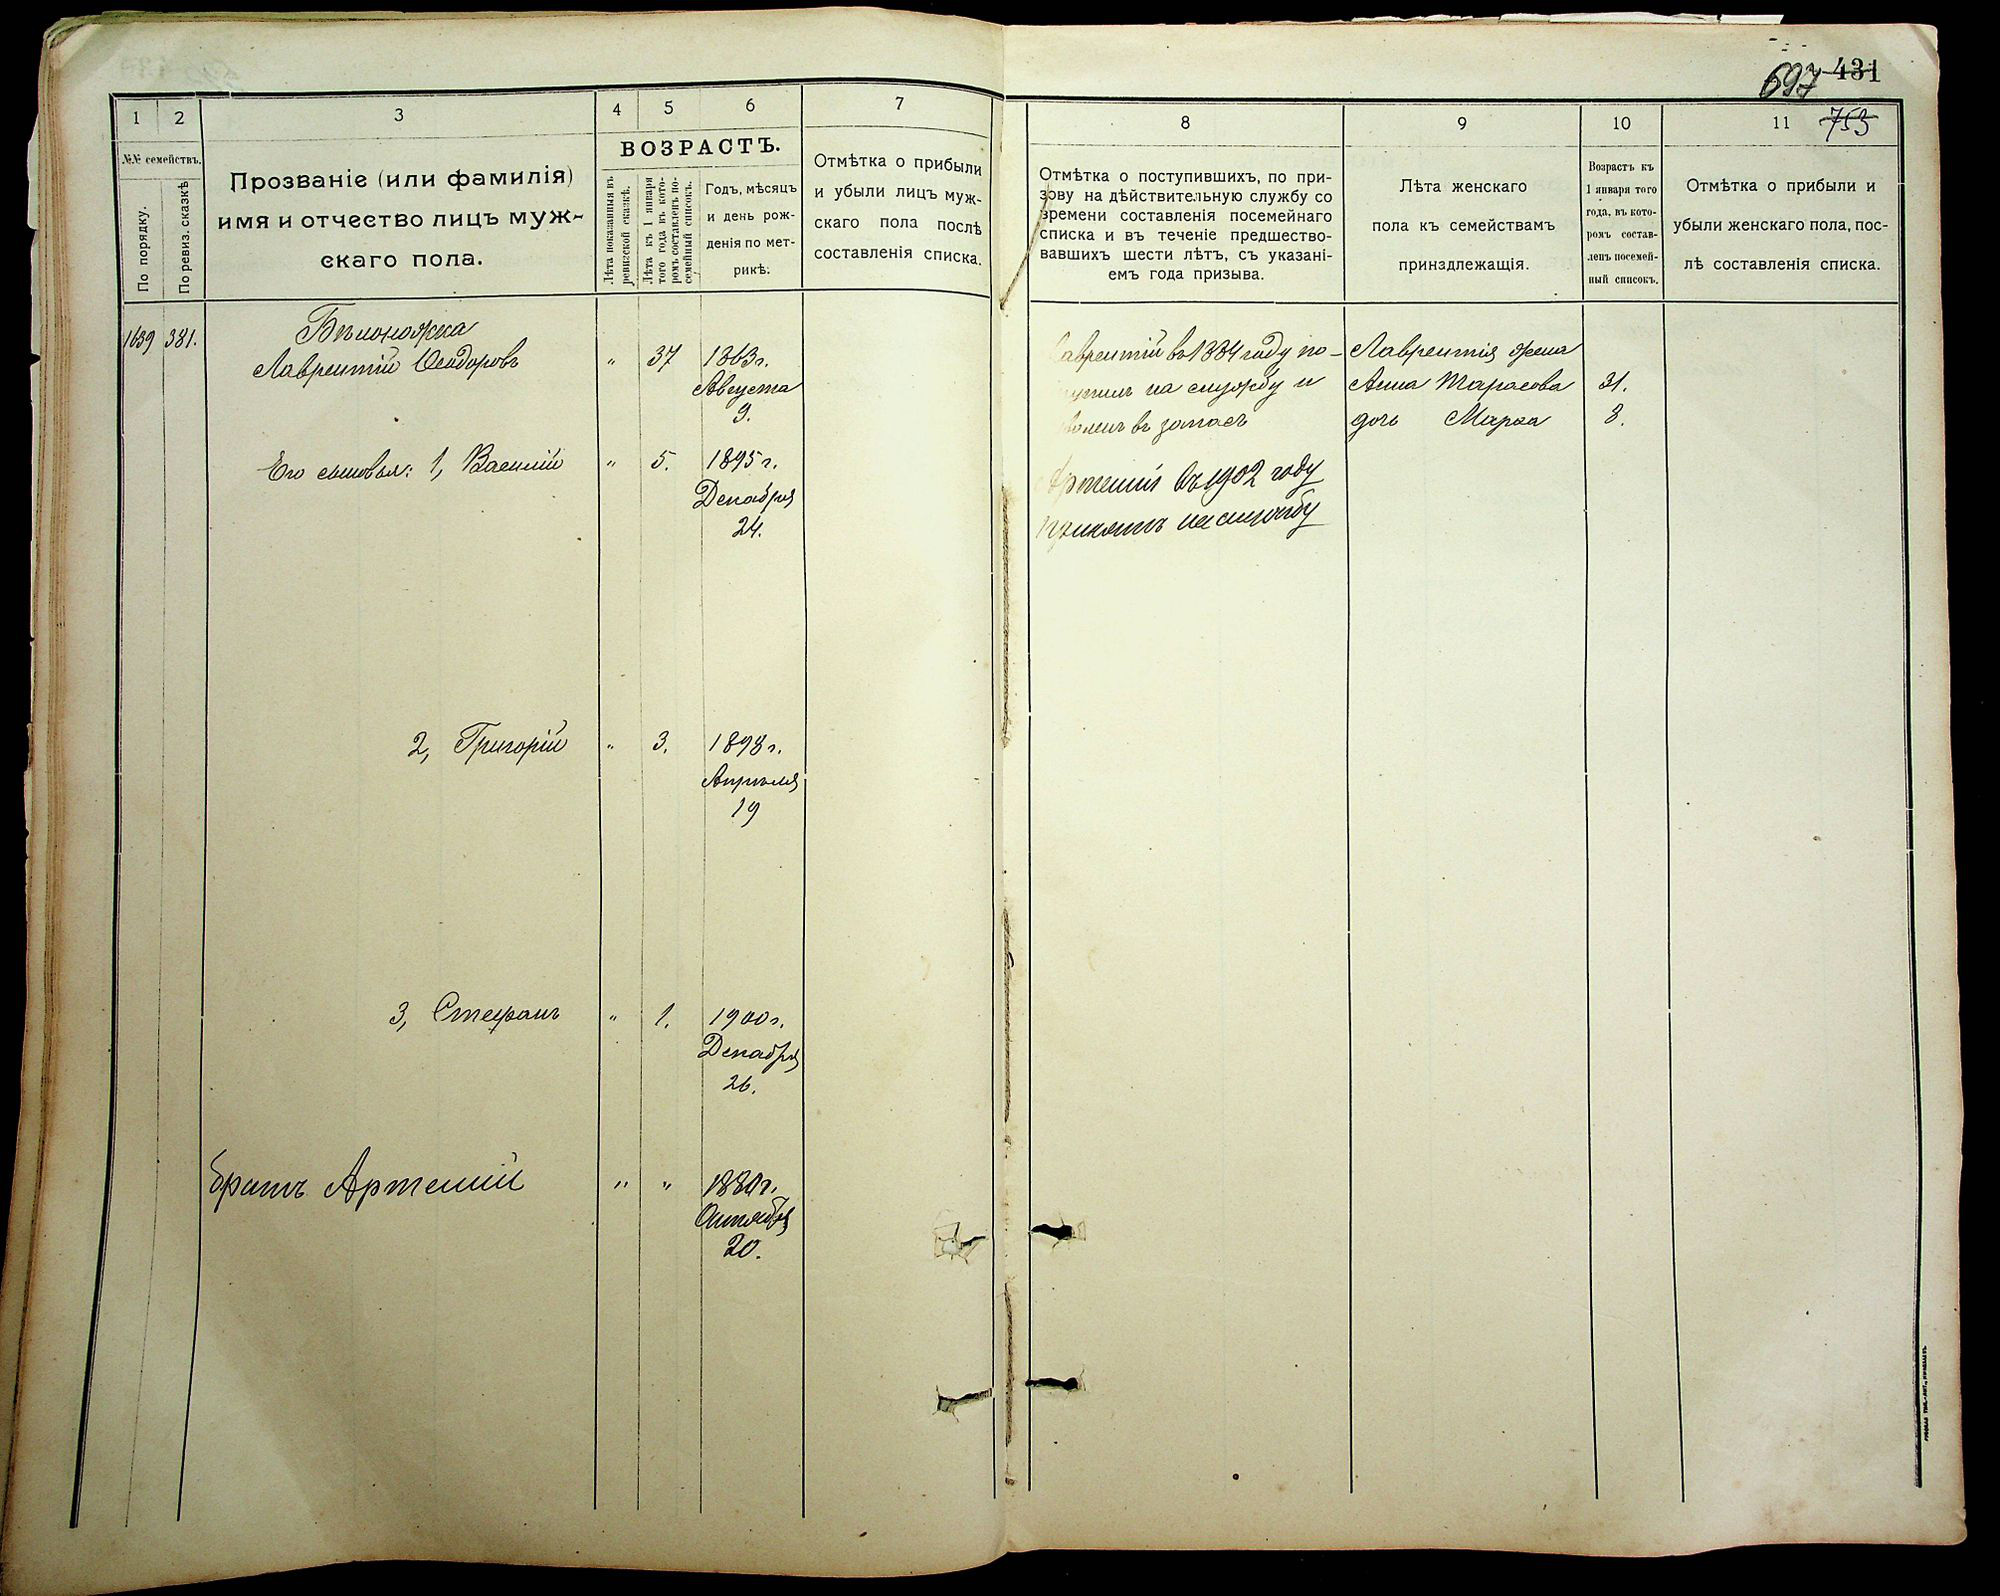 697 431
753
1
2
3
4
5
6
7
№№ семействъ.
По порядку.
По ревиз. сказкѣ
Прозваніе (или фамилія)
имя и отчество лицъ муж-
скаго пола.
ВОЗРАСТЪ.
Лѣта показанныя въ
ревизской сказкѣ.
Лѣта къ 1 января
того года въ кото-
ромъ составленъ по-
семейный списокъ.
Годъ, мѣсяцъ
и день рож-
денія по мет-
рикѣ.
Отмѣтка о прибыли
и убыли лицъ муж-
скаго пола послѣ
составленія списка.
1639 381.
Бѣлоножка
Лаврентій Ѳеодоровъ " 37 1863 г.
Августа
9.
Его сыновья: 1, Василій " 5. 1895 г.
Декабря
24.
2, Григорій " 3. 1898 г.
Апрѣля
19
3, Стефанъ " 1. 1900 г.
Декабря
26.
братъ Артемій " " 1880 г.
Октября
20.
8
9
10
11
Отмѣтка о поступившихъ, по при-
зову на дѣйствительную службу со
времени составленія посемейнаго
списка и въ теченіе предшество-
вавшихъ шести лѣтъ, съ указані-
емъ года призыва.
Лѣта женскаго
пола къ семействамъ
принздлежащія.
Возрастъ къ
1 января того
года, въ кото-
ромъ состав-
ленъ посемей-
ный списокъ.
Отмѣтка о прибыли и
убыли женскаго пола, пос-
лѣ составленія списка.
Лаврентій въ 1884 году по-
на службу и
въ запасъ
Артемій въ 1902 году
принятъ на службу
Лаврентія жена
Анна Тарасова 31.
дочь Марѳа 8.